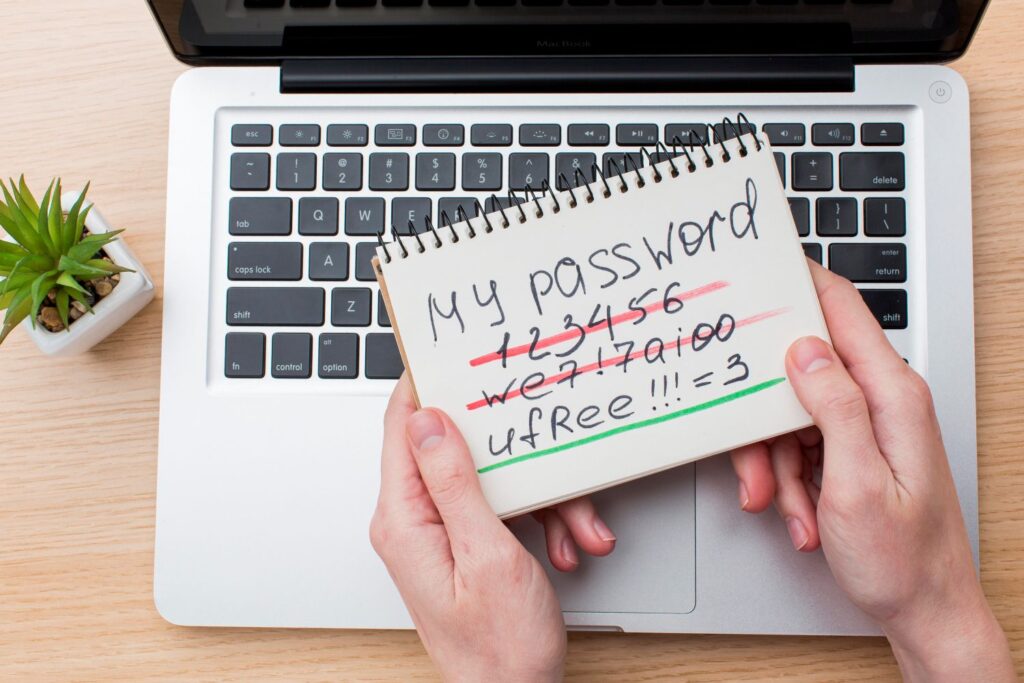 MacBook
esc F1 F2 F3 F4 F5 F6 F7 F8
~ ! 1 @ 2 # 3 $ 4 % 5 ^ 6 & + = delete
tab Q W E } ] { [ | \
caps lock A enter return
shift Z shift
fn control alt option
My password
123456
we7!7aioo
ufRee!!!=3